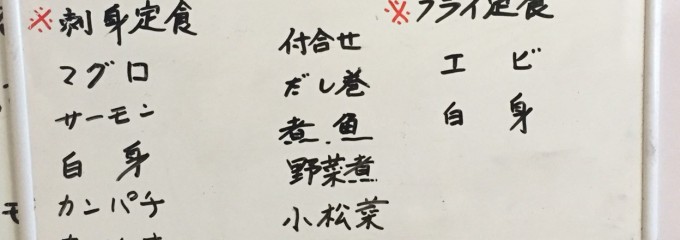 ※刺身定食
マグロ
サーモン
白身
カンパチ
付合せ
だし巻
煮魚
野菜煮
小松菜
※フライ定食
エビ
白身
モ